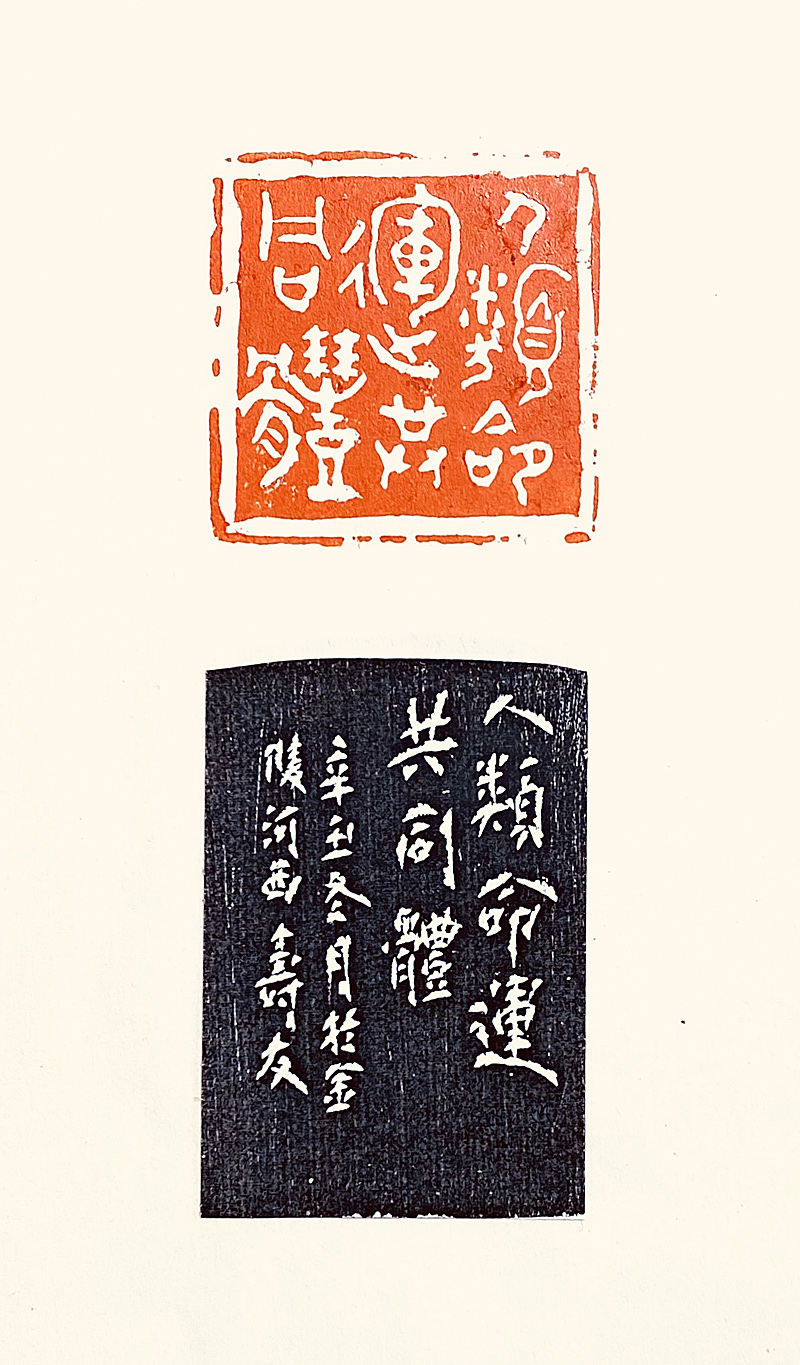 人類命
運共
同體
人類命運
共同體
辛丑冬月於金
陵河西壽友